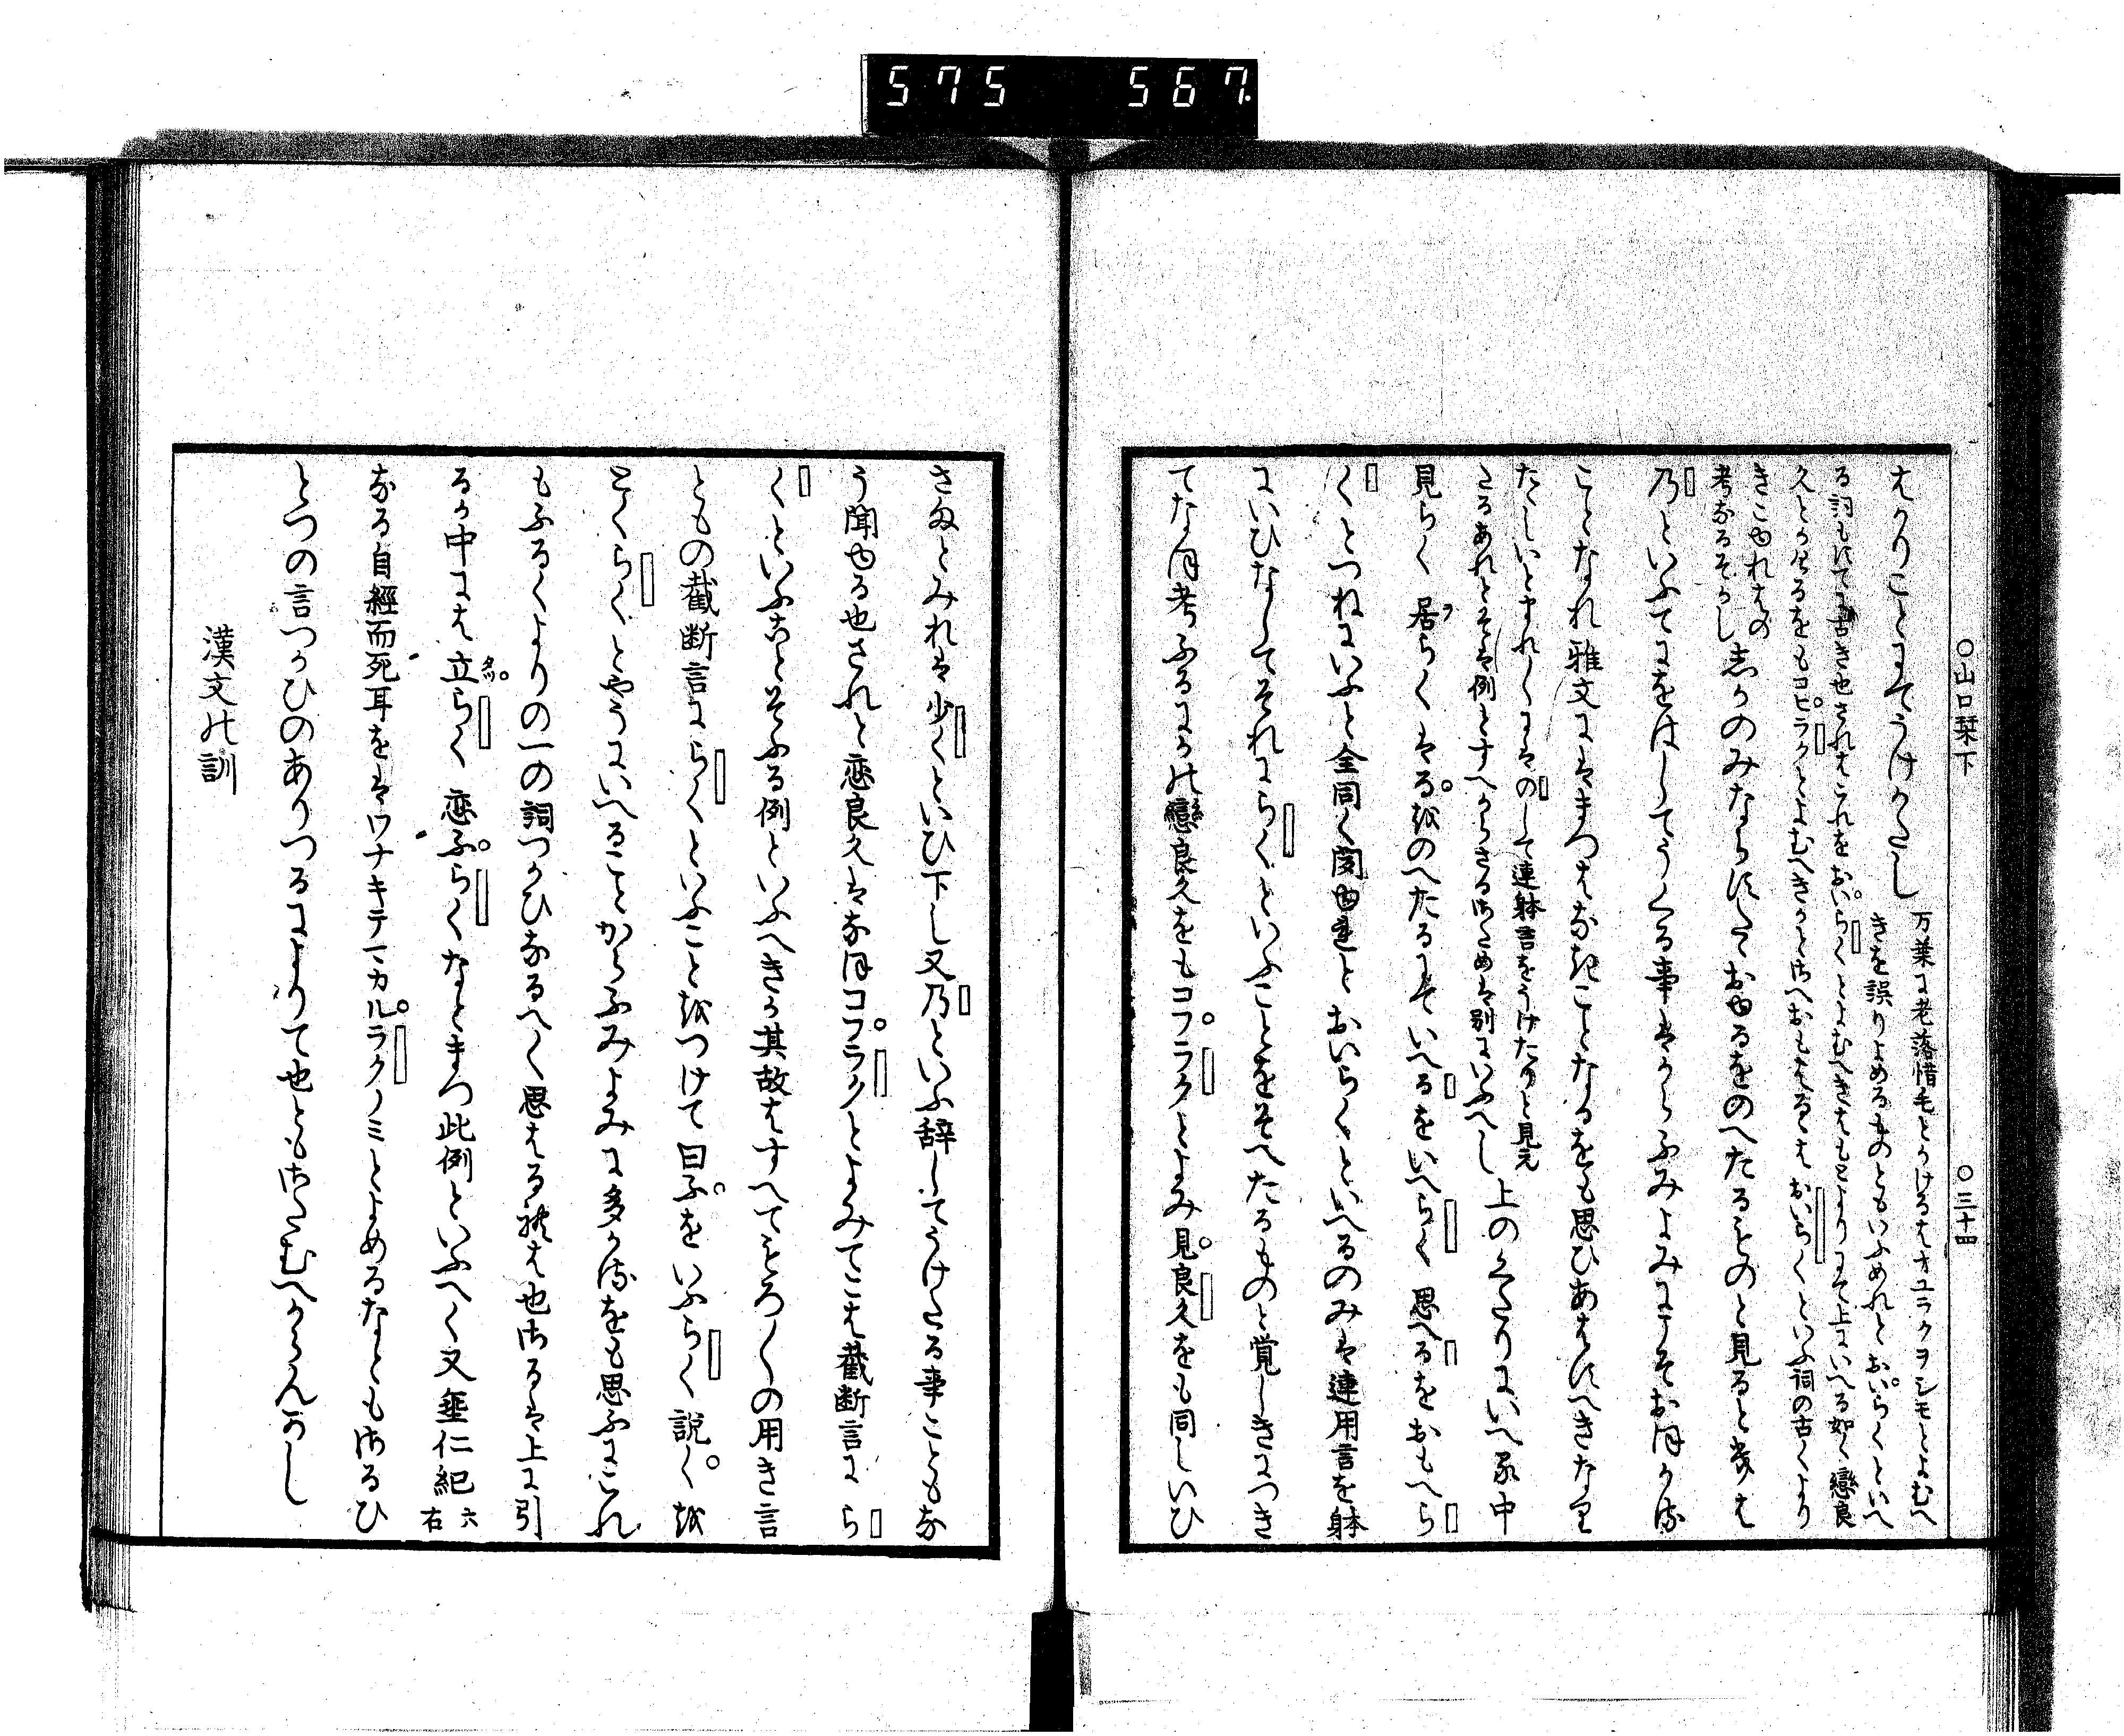 575 567.
○山口栞下 ○三十四
はかりことにてうけかたし
万葉に老落惜毛とかけるはオユラクヲシモとよむへ
きを誤りよめるものともいふめれとおいらくといへ
る詞もいにて古き也されはこれをおいらくとよむへきはもとよりにて上にいへる如く戀良
久とかけるをもコヒラクとよむへきかとさへおもはるるはおいらくといふ詞の古くより
きこゆれはの
考なるそかし
しかのみならすたたおゆるをのへたるものと見るときは
乃といふてにをはしてうくる事はからふみよみにこそおほかれ
ことなれ雅文にはまつはなきことなるをも思ひあはすへきなり
たたしいとまれまれには のして連躰言をうけたりと見え
たるあれとそは例とすへからさるさためは別にいふへし
上のくたりにいへる中
見らく 居らくはるをのへたるにていへるをいへらく 思へるをおもへら
くとつねにいふと全同く聞ゆれとおいらくといへるのみは連用言を躰
にいひなしてそれにらくといふことをそへたるものと覚しきにつき
てなほ考ふるにかの戀良久をもコフラクとよみ見良久をも同しいひ
さまとみれは少くといひ下し又乃といふ辞してうけたる事ともな
う聞ゆる也されと恋良久はなほコフラクとよみてこは截断言にら
くといふことそふる例といふへきか其故はすへてもろもろの用き言
ともの截断言にらくといふことをつけて曰ふをいふらく 説くを
とくらくとやうにいへることからふみよみに多かるをも思ふにこれ
もふるくよりの一の詞つかひなるへく思はる れは也さるは上に引
るか中には 立らく 恋ふらくなとまつ此例といふへく又垂仁紀 六右
なる自經而死耳をはワナキテマカルラクノミとよめるなともさるひ
とつの言つかひのありつるによりて也ともさためへからんかし
漢文の訓